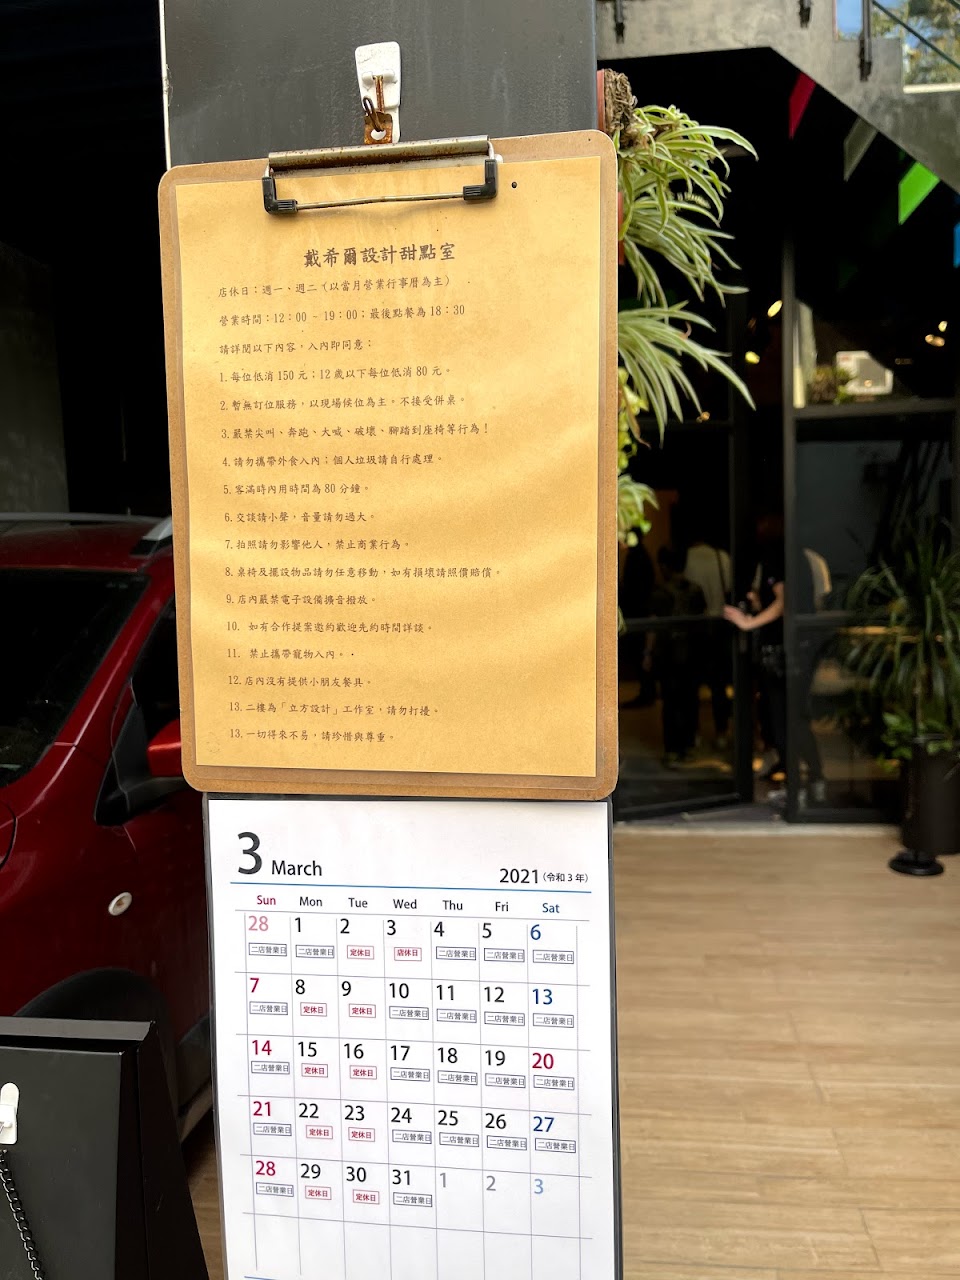 戴希爾設計甜點室
店休日：週一、週二（以當月營業行事曆為主）
營業時間：12：00 - 19：00；最後點餐為 18：30
請詳閱以下內容，入內即同意：
1. 每位低消 150 元；12 歲以下每位低消 80 元。
2. 暫無訂位服務，以現場候位為主。不接受併桌。
3. 嚴禁尖叫、奔跑、大喊、破壞、腳踏到座椅等行為！
4. 請勿攜帶外食入內；個人垃圾請自行處理。
5. 客滿時內用時間為 80 分鐘。
6. 交談請小聲，音量請勿過大。
7. 拍照請勿影響他人，禁止商業行為。
8. 桌椅及擺設物品請勿任意移動，如有損壞請照價賠償。
9. 店內嚴禁電子設備擴音撥放。
10. 如有合作提案邀約歡迎先約時間詳談。
11. 禁止攜帶寵物入內。
12. 店內沒有提供小朋友餐具。
13. 二樓為「立方設計」工作室，請勿打擾。
13. 一切得來不易，請珍惜與尊重。
3 March 2021（令和 3 年）
Sun Mon Tue Wed Thu Fri Sat
28 1 2 3 4 5 6
二店營業日 二店營業日 定休日 店休日 二店營業日 二店營業日 二店營業日
7 8 9 10 11 12 13
二店營業日 定休日 定休日 二店營業日 二店營業日 二店營業日 二店營業日
14 15 16 17 18 19 20
二店營業日 定休日 定休日 二店營業日 二店營業日 二店營業日 二店營業日
21 22 23 24 25 26 27
二店營業日 定休日 定休日 二店營業日 二店營業日 二店營業日 二店營業日
28 29 30 31 1 2 3
二店營業日 定休日 定休日 二店營業日